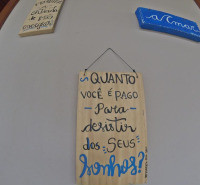 QUANTO
VOCÊ É PAGO
Para
desistir
dos SEUS
Sonhos?